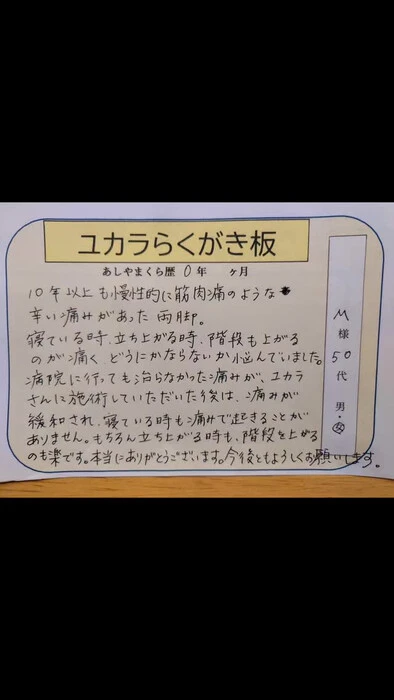 ユカラらくがき板
あしやまくら歴 0年 ヶ月
10年以上も慢性的に筋肉痛のような
辛い痛みがあった両脚。
寝ている時、立ち上がる時、階段も上がる
のが痛く どうにかならないか悩んでいました。
病院に行っても治らなかった痛みが、ユカラ
さんに施術していただいた後は、痛みが
緩和され、寝ている時も痛みで起きることが
ありません。もちろん立ち上がる時も、階段を上がる
のも楽です。本当にありがとうございます。今後ともよろしくお願いします。
M様 50代 男・女